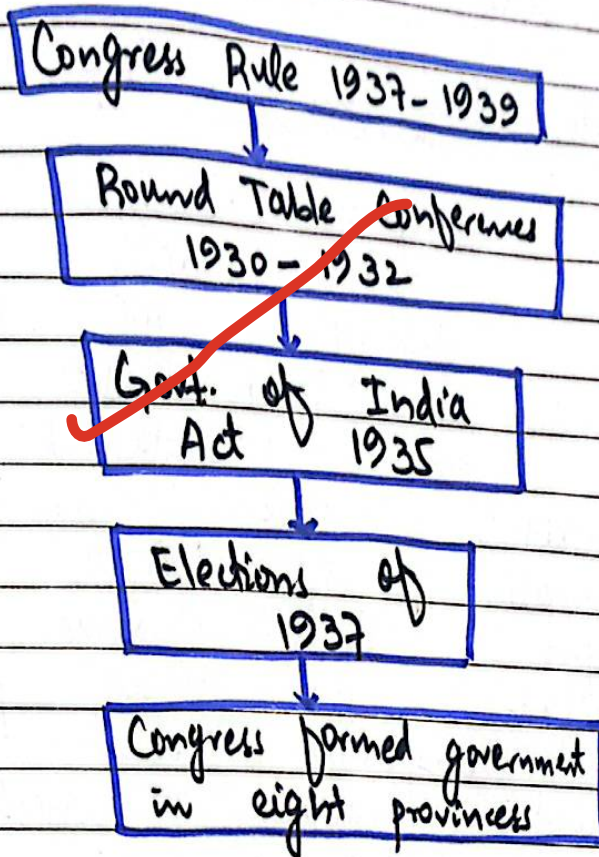 Congress Rule 1937-1939
Round Table Conferences
1930-1932
Govt. of India
Act 1935
Elections of
1937
Congress formed government
in eight provincess